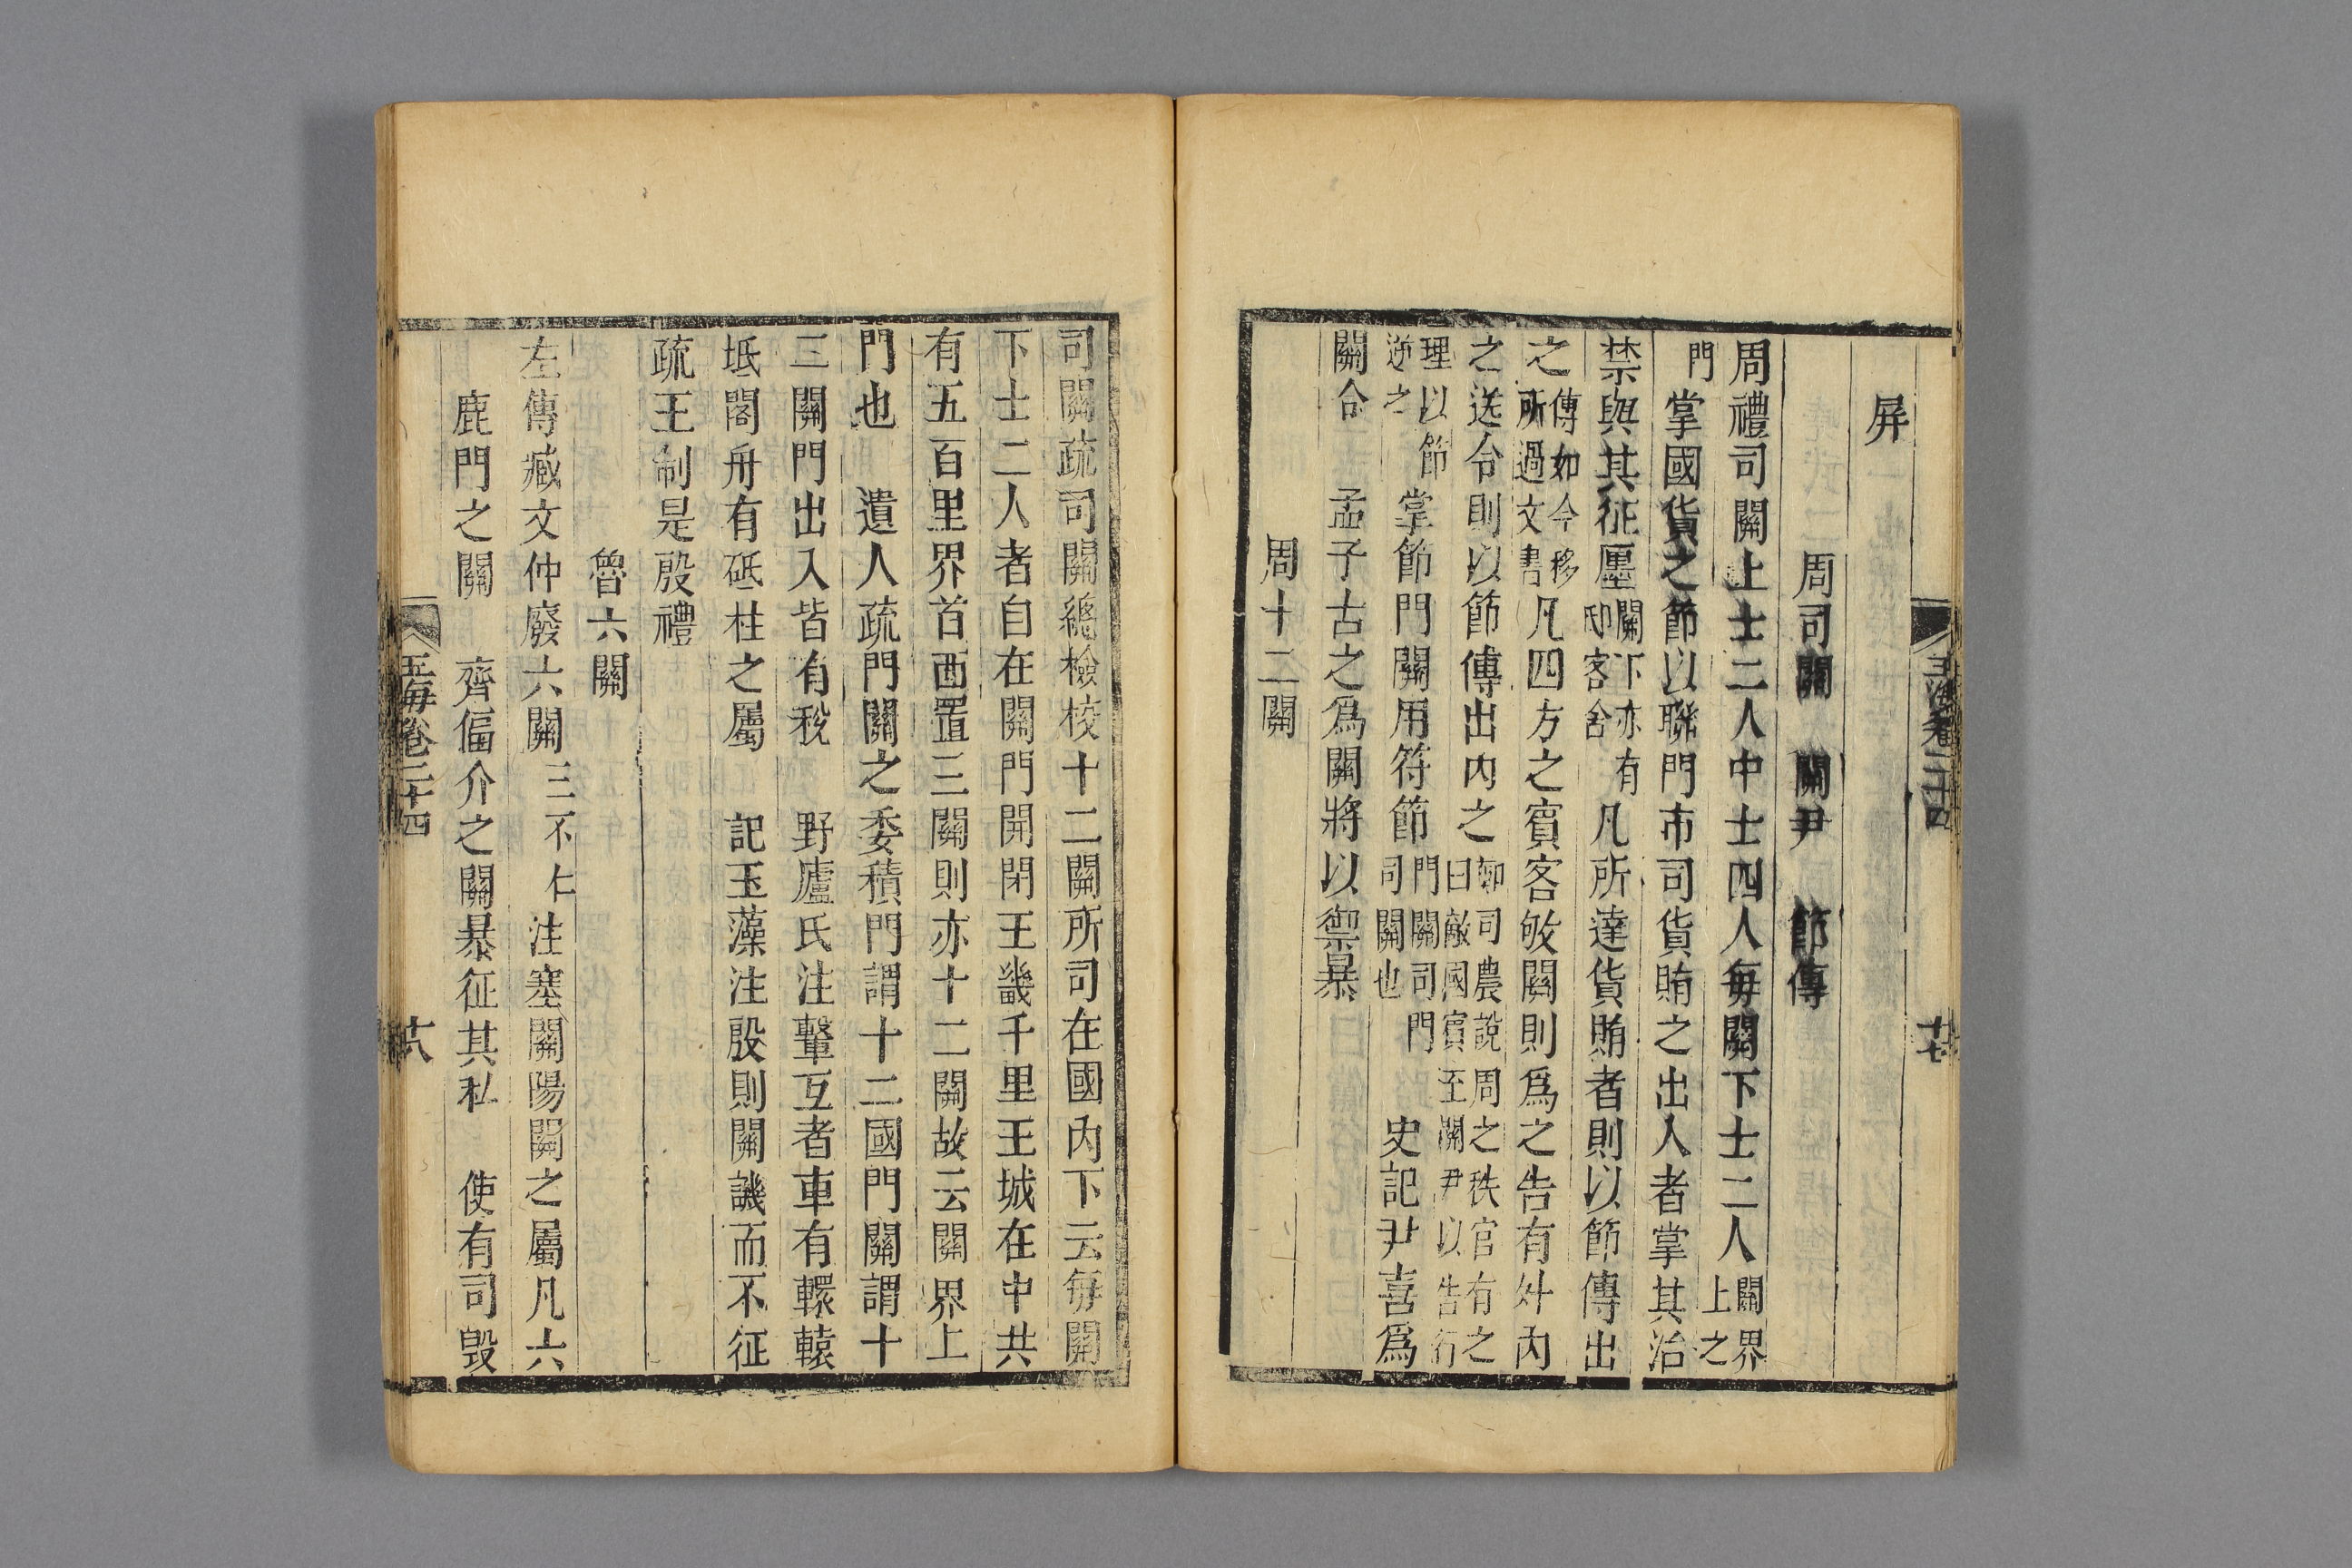 玉海卷二十四
十七
屏
周司關 關尹 節傳
周禮司關上士二人中士四人每關下士二人關界上之
門掌國貨之節以聯門市司貨賄之出入者掌其治
禁與其征廛關下亦有邸客舍凡所達貨賄者則以節傳出
之傳如今移所過文書凡四方之賓客敂關則爲之告有外內
之送令則以節傳出內之鄭司農說周之秩官有之曰敵國賓至關尹以告行
理以節逆之 掌節門關用符節門關司門司關也 史記尹喜爲
關令 孟子古之爲關將以禦暴
周十二關
司關疏司關總檢校十二關所司在國內下云每關
下士二人者自在關門開閉王畿千里王城在中共
有五百里界首面置三關則亦十二關故云關界上
門也 遺人疏門關之委積門謂十二國門關謂十
三關門出入皆有稅 野廬氏注轚互者車有轘轅
坻閣舟有砥柱之屬 記玉藻注殷則關譏而不征
疏王制是殷禮
魯六關
左傳臧文仲廢六關三不仁注塞關陽關之屬凡六
鹿門之關 齊偪介之關暴征其私 使有司毀
玉海卷二十四
十八